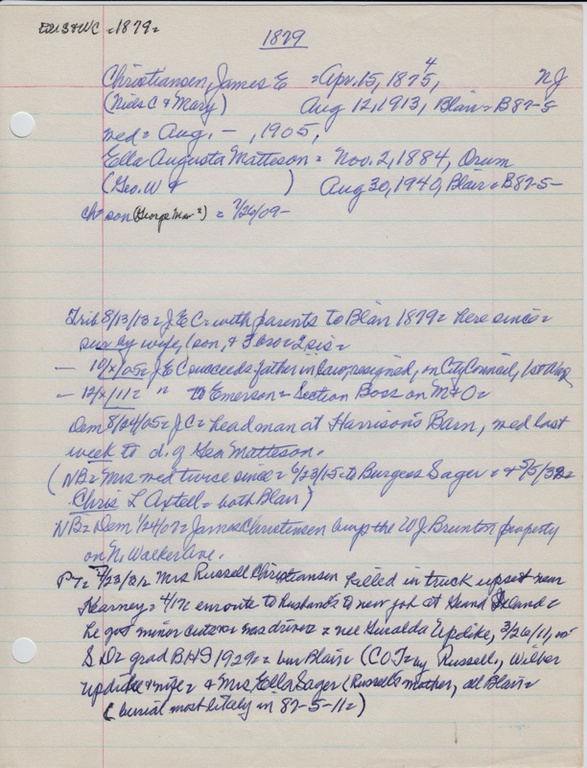 1879
1879
Christiansen, James E = Apr. 15, 1875, 4 NJ
(Niels C & Mary) Aug 12, 1913, Blair = B87-5
med = Aug. -, 1905,
Ella Augusta Matteson = Nov. 2, 1884, Orum
(Geo. W & ) Aug 30, 1940, Blair = B87-5-
ch = son (George Max?) = 7/26/09-
Trib 8/13/13 = J E C = with parents to Blair 1879 = here since =
sur by wife, 1 son, & 3 bro = 2 sis =
- 10/x/05 = J E C succeeds father in resigned, on City Council,
- 12/x/11 = " to Emerson = Section Boss on M & O =
Dem 8/24/05 = J C = head man at Harrison's Barn, med last
week to d. of Geo Matteson.
(NB = Mrs med twice since = 6/23/15 = to Burgess Sager = & 5/5/32 =
Chris L Axtell = both Blair)
NB = Dem 1/24/07 = James Christensen buys the W J Brunton property
on N. Walker Ave.
PT = 4/23/31 = Mrs Russell Christiansen killed in truck upset near
Kearney = 4/12 enroute to husbands to new job at Grand Island =
he got minor cuts = was driver = nee Geralda Updike, 3/26/11, in
S D = grad BHS 1929 = bur Blair = (COT = by Russell, Wilber
Updike & wife = & Mrs Ella Sager (Russell's mother, all Blair =
(burial most likely in 87-5-11 = )